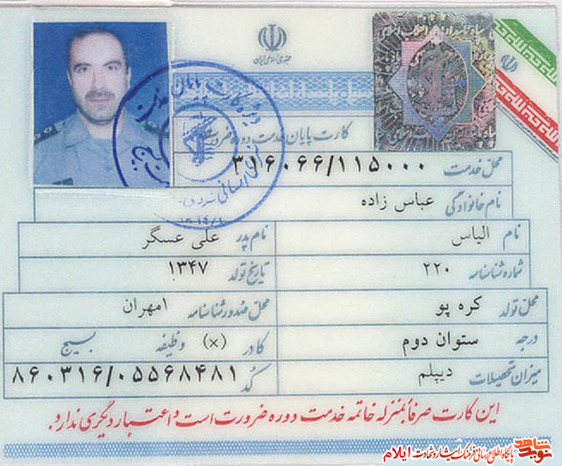 جمهوری اسلامی ایران
کارت پایان خدمت دوره ضرورت
محل خدمت ۳۱۶۰۶۶/۱۱۵۰۰۰
نام خانوادگی عباس زاده
نام الیاس نام پدر علی عسگر
شماره شناسنامه ۲۲۰ تاریخ تولد ۱۳۴۷
محل تولد کره پو محل صدور شناسنامه امهران
درجه ستوان دوم کادر (×) وظیفه بسیج
میزان تحصیلات دیپلم کد ۸۶۰۳۱۶/۰۵۵۶۸۴۸۱
این کارت صرفاً بمنزله خاتمه خدمت دوره ضرورت است و اعتبار دیگری ندارد.
نوید شاهد پایگاه اطلاع رسانی فرهنگ ایثار و شهادت ایلام